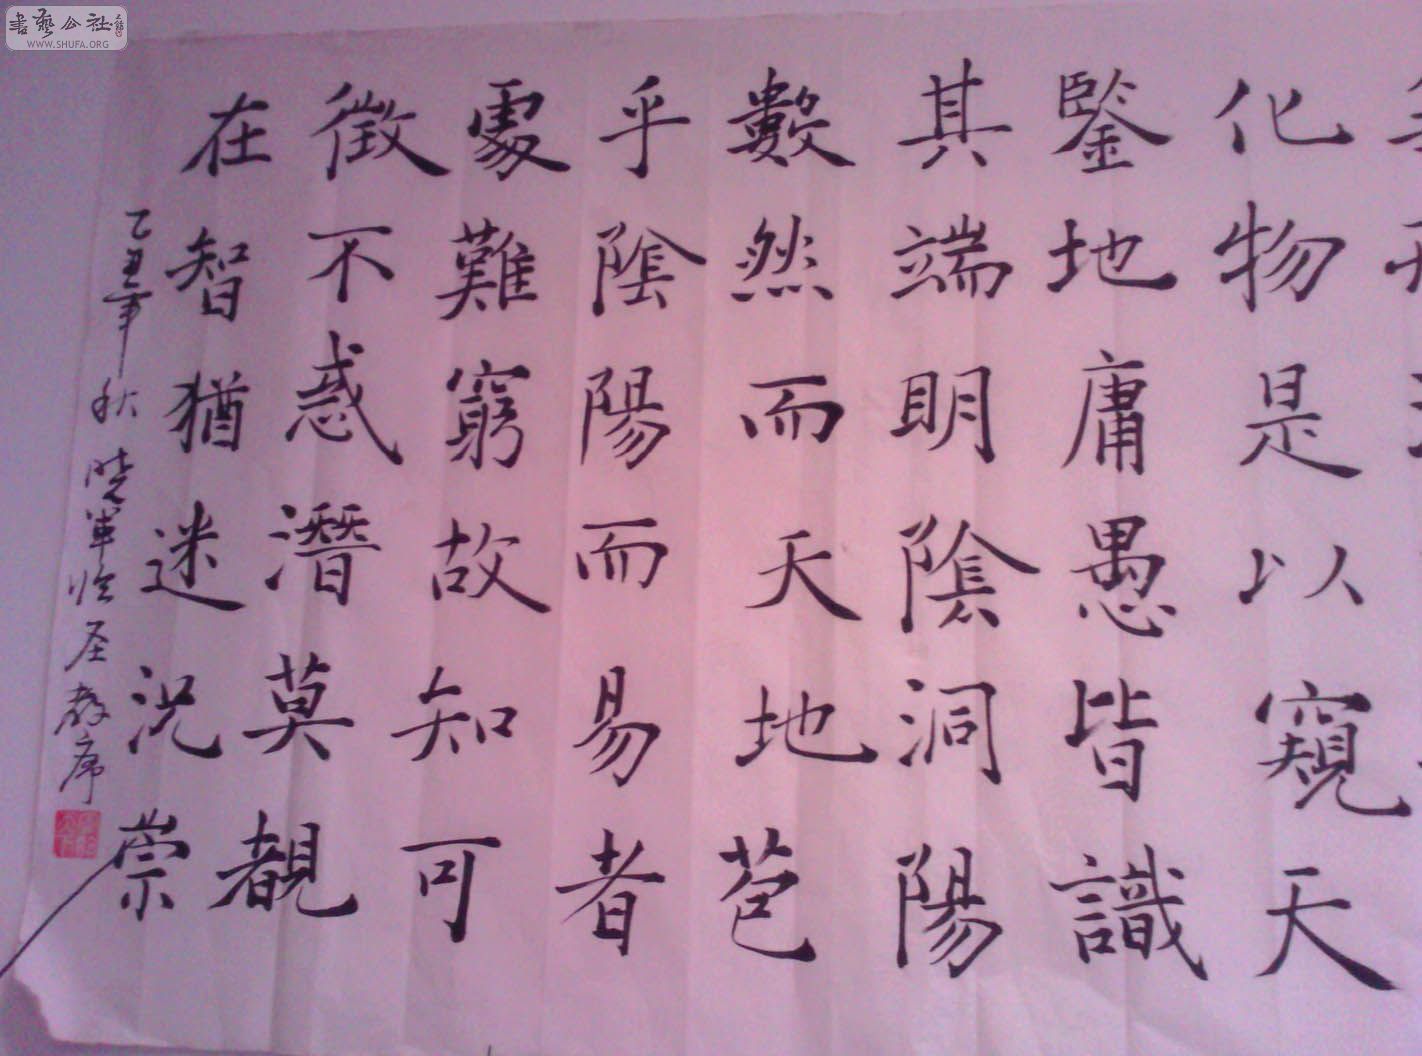 化物是以窺天
鑒地庸愚皆識
其端明陰洞陽
數然而天地苞
乎陰陽而易者
處難窮故知可
徵不惑潛莫覩
在智猶迷況崇
乙丑年秋晓军临圣教序
書藝公社
WWW.SHUFA.ORG